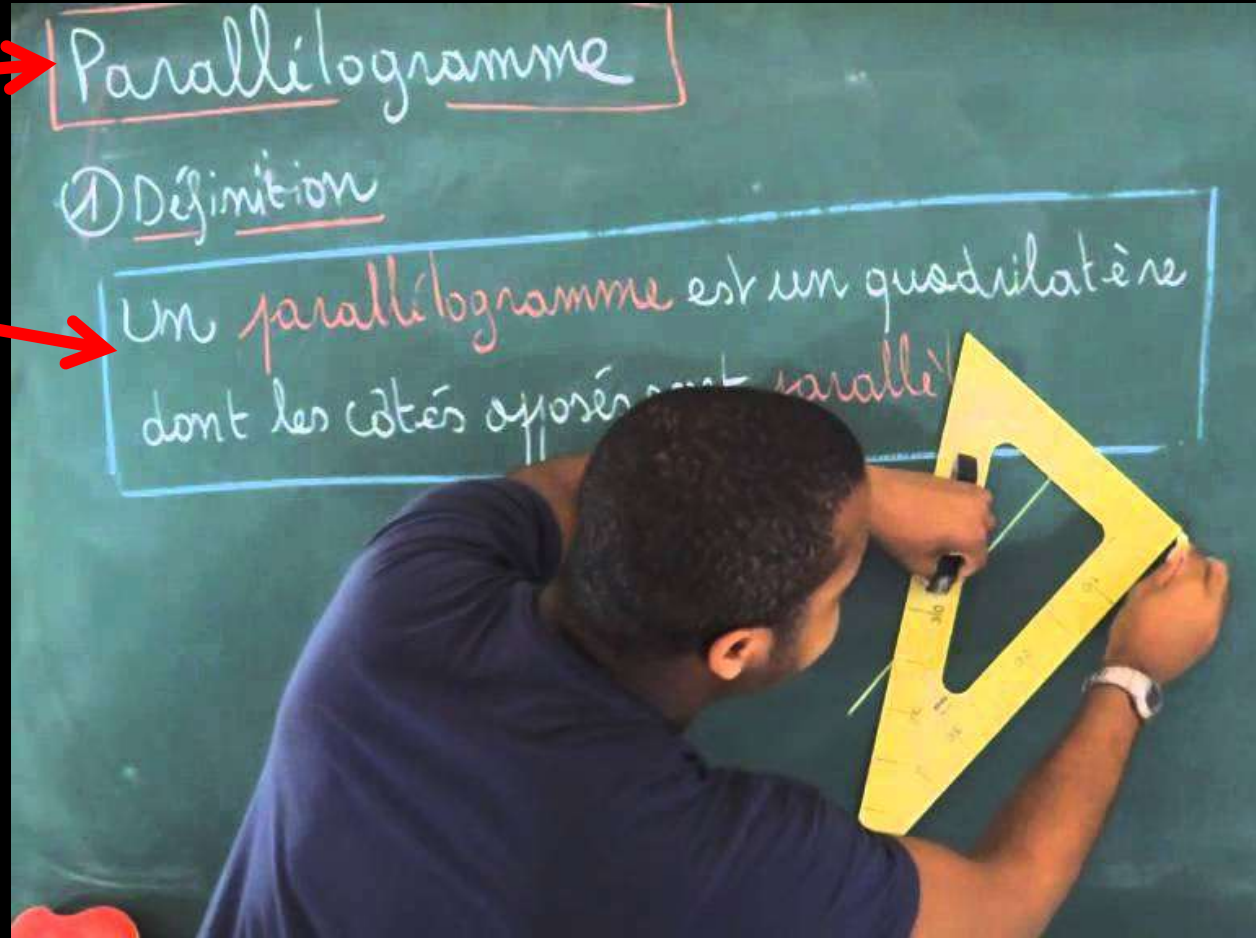 Parallélogramme
① Définition
Un parallélogramme est un quadrilatère
dont les côtés opposés sont